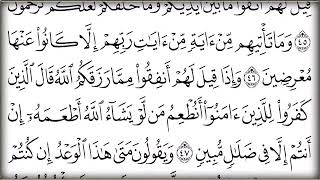 قِيلَ لَهُمُ ٱتَّقُوا۟ مَا بَيْنَ أَيْدِيكُمْ وَمَا خَلْفَكُمْ لَعَلَّكُمْ تُرْحَمُونَ
﴿٤٥﴾ وَمَا تَأْتِيهِم مِّنْ ءَايَةٍ مِّنْ ءَايَٰتِ رَبِّهِمْ إِلَّا كَانُوا۟ عَنْهَا
مُعْرِضِينَ ﴿٤٦﴾ وَإِذَا قِيلَ لَهُمْ أَنفِقُوا۟ مِمَّا رَزَقَكُمُ ٱللَّهُ قَالَ ٱلَّذِينَ
كَفَرُوا۟ لِلَّذِينَ ءَامَنُوٓا۟ أَنُطْعِمُ مَن لَّوْ يَشَآءُ ٱللَّهُ أَطْعَمَهُۥٓ إِنْ
أَنتُمْ إِلَّا فِى ضَلَٰلٍ مُّبِينٍ ﴿٤٧﴾ وَيَقُولُونَ مَتَىٰ هَٰذَا ٱلْوَعْدُ إِن كُنتُمْ